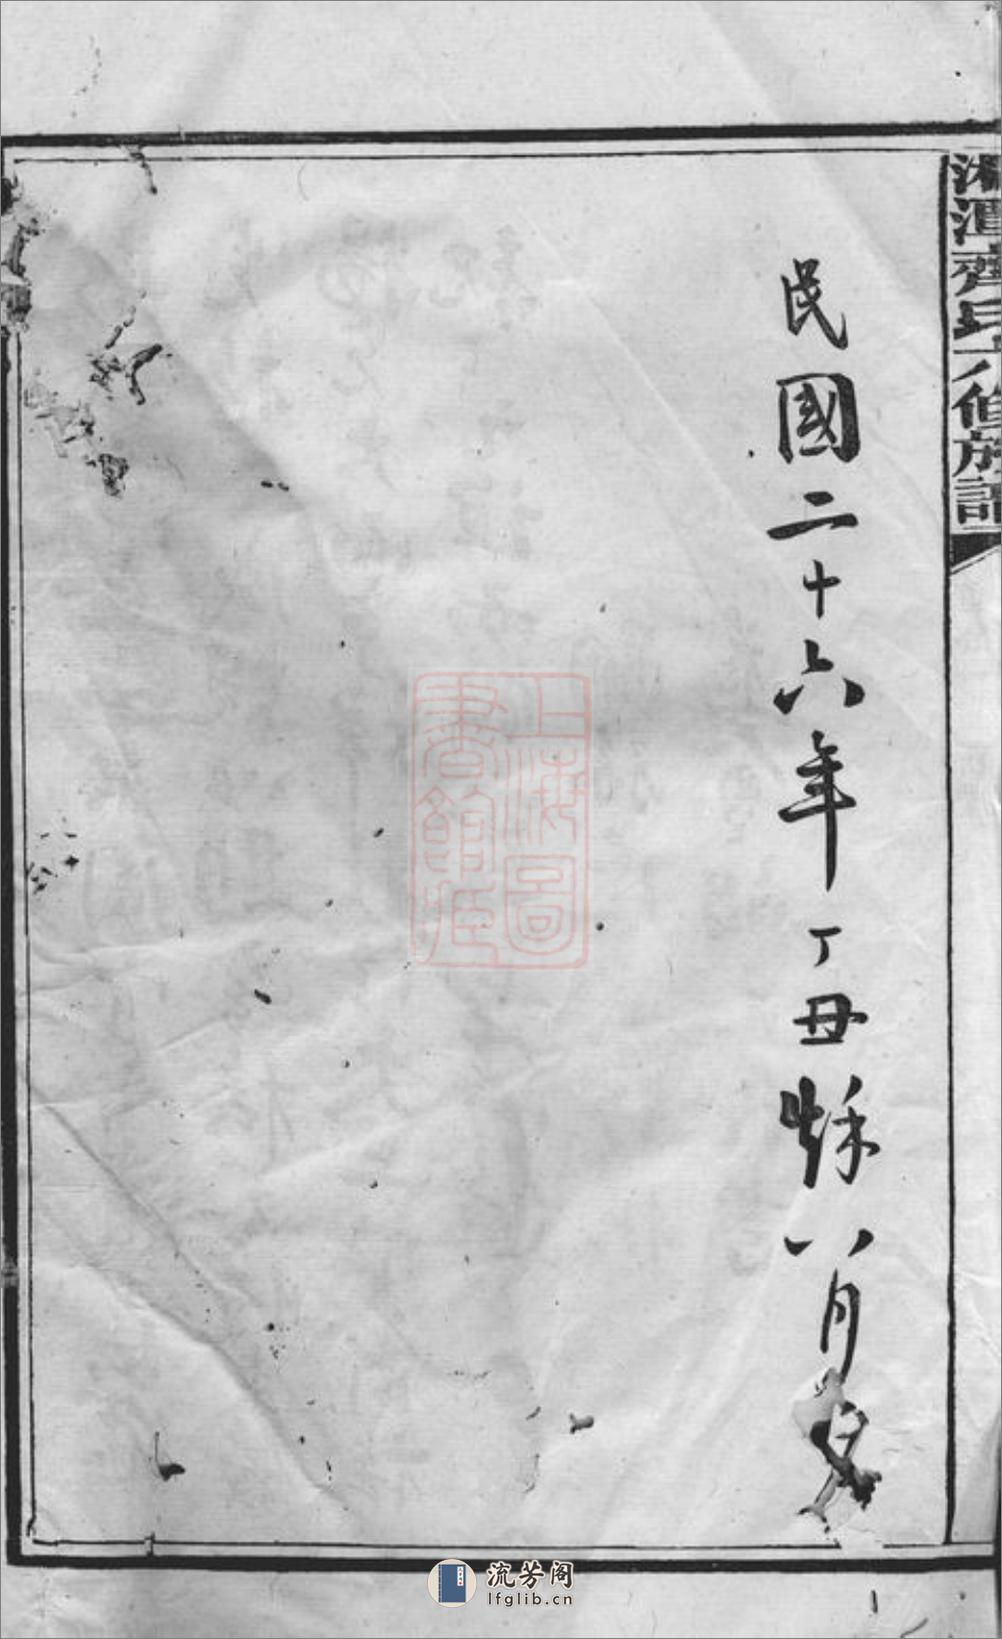 湘潭齊氏六修族譜
民國二十六年丁丑秌八月
上海圖
書館藏
流芳阁
lfglib.cn